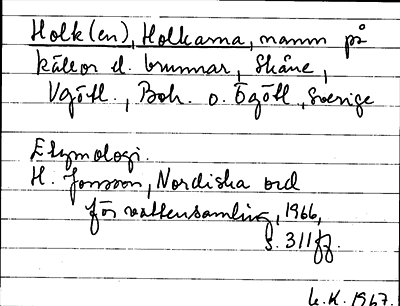 Holk(en), Holkarna, namn på
källor el. brunnar, Skåne,
Vgötl., Boh. o. Ögötl., Sverige
Etymologi.
H. Jonsson, Nordiska ord
för vattensamling, 1966,
s. 311ff.
L.K. 1967.